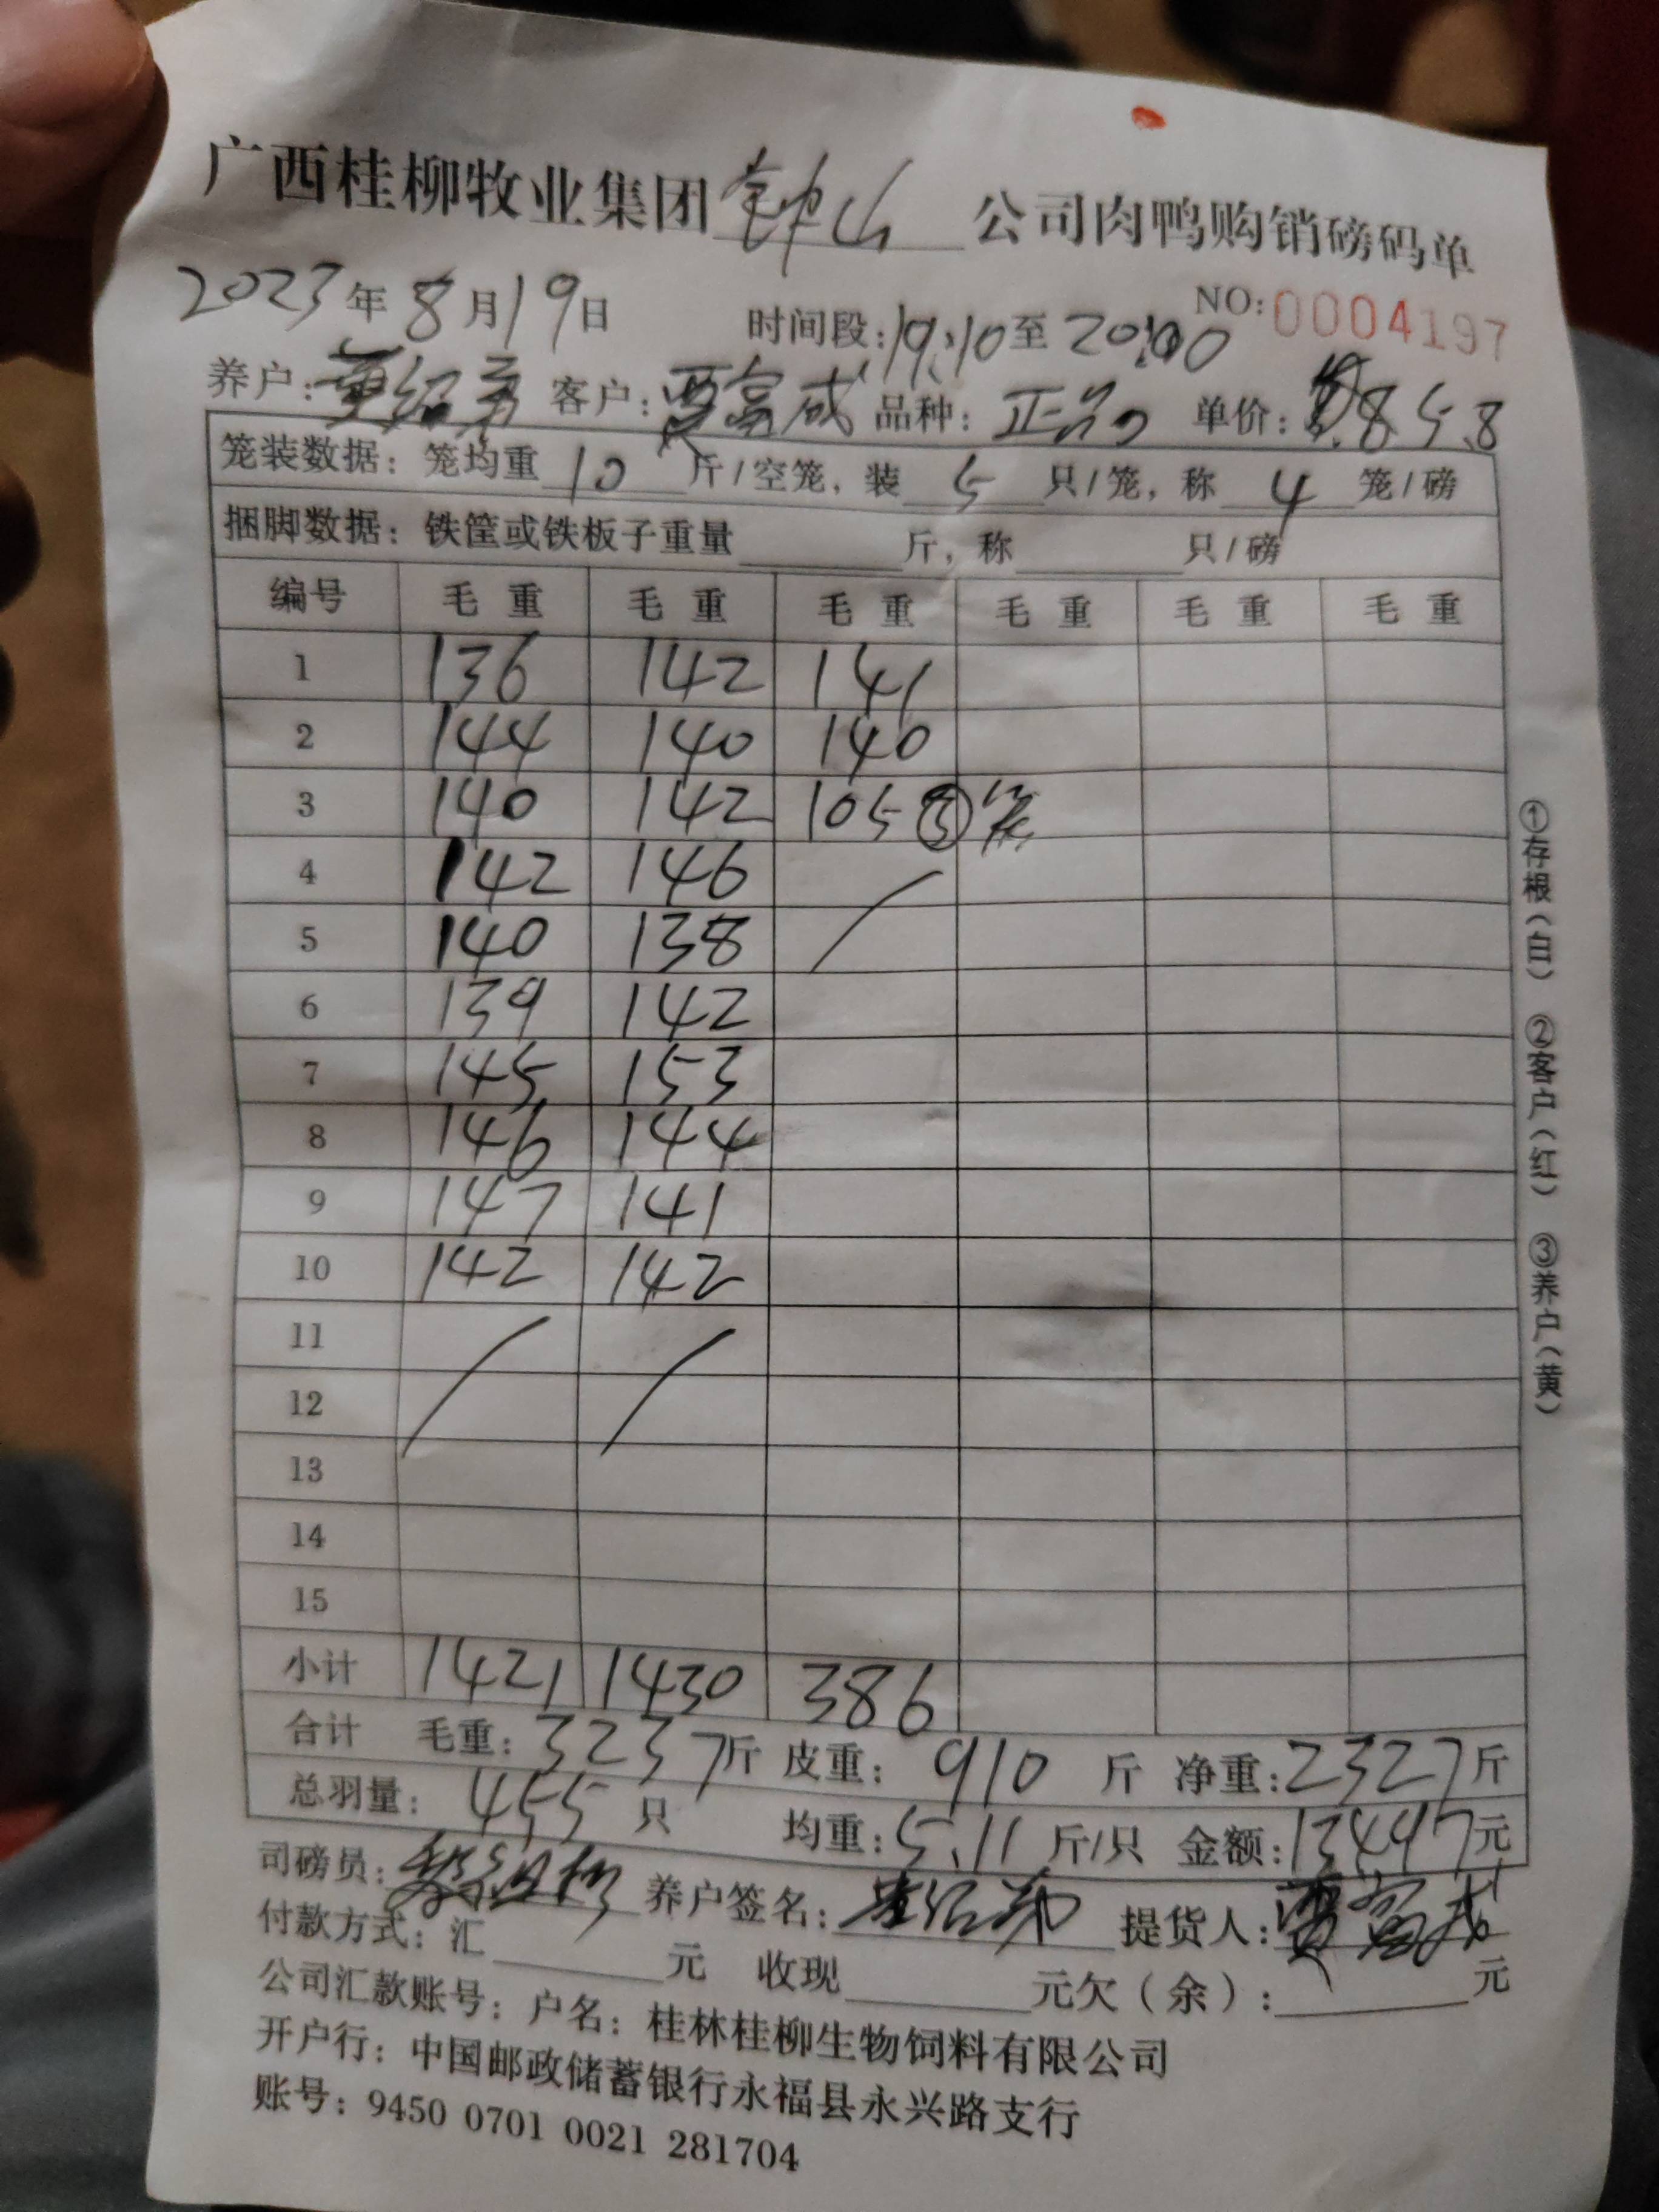 广西桂柳牧业集团钟山公司肉鸭购销磅码单
NO:0004197
2023年8月19日 时间段:19:10至20:00
养户: 客户:贾富成 品种:正品 单价:5.8
笼装数据: 笼均重10斤/空笼, 装5只/笼, 称4笼/磅
捆脚数据: 铁筐或铁板子重量 斤, 称 只/磅
编号 毛重 毛重 毛重 毛重 毛重 毛重
1 136 142 141
2 144 140 140
3 140 142 105 ③笼
4 142 146
5 140 138
6 139 142
7 145 153
8 146 144
9 147 141
10 142 142
11
12
13
14
15
小计 1421 1430 386
合计 毛重:3237斤 皮重:910斤 净重:2327斤
总羽量:455只 均重:5.11斤/只 金额:13497元
司磅员: 养户签名: 提货人:贾富成
付款方式: 汇 元 收现 元欠(余): 元
公司汇款账号: 户名: 桂林桂柳生物饲料有限公司
开户行: 中国邮政储蓄银行永福县永兴路支行
账号: 9450 0701 0021 281704
①存根(白) ②客户(红) ③养户(黄)